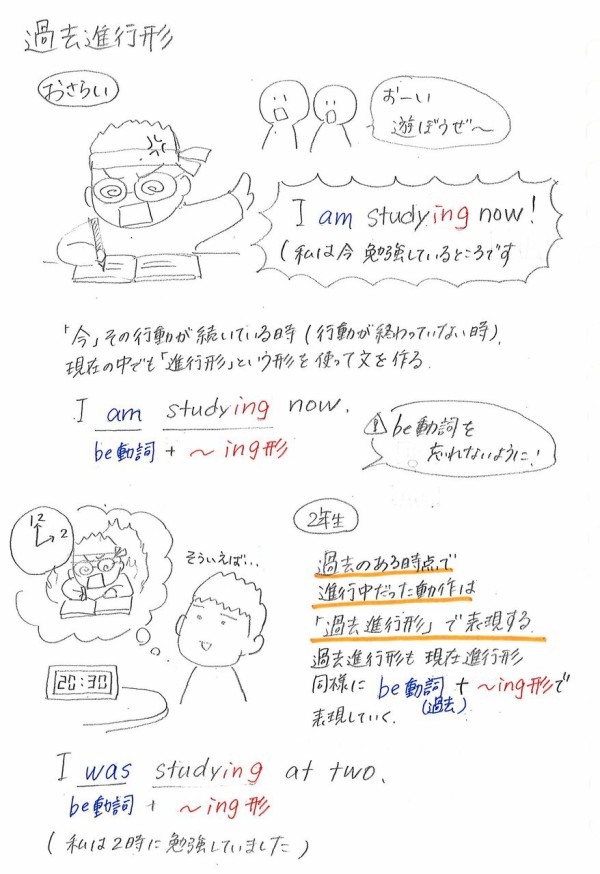 過去進行形
おさらい
おーい
遊ぼうぜ〜
I am studying now!
(私は今 勉強しているところです
「今」その行動が続いている時(行動が終わっていない時),
現在の中でも「進行形」という形を使って文を作る.
I am studying now.
be動詞 + 〜ing形
! be動詞を
忘れないように!
2年生
12
2
そういえば...
過去のある時点で
進行中だった動作は
「過去進行形」で表現する.
過去進行形も現在進行形
同様に be動詞 + 〜ing形で
(過去)
表現していく.
20:30
I was studying at two.
be動詞 + 〜ing形
(私は2時に勉強していました)